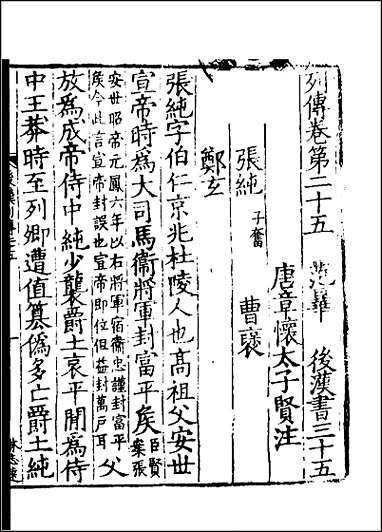 列傳卷第二十五　范曄　後漢書三十五
唐章懷太子賢注
張純子奮　曹襃
鄭玄
張純字伯仁京兆杜陵人也高祖父安世
宣帝時爲大司馬衞將軍封富平侯臣賢案張
安世昭帝元鳳六年以右將軍宿衞忠謹封富平
侯今此言宣帝封誤也宣帝即位但益封萬戶耳父
放爲成帝侍中純少襲爵土哀平閒爲侍
中王莽時至列卿遭值篡僞多亡爵土純